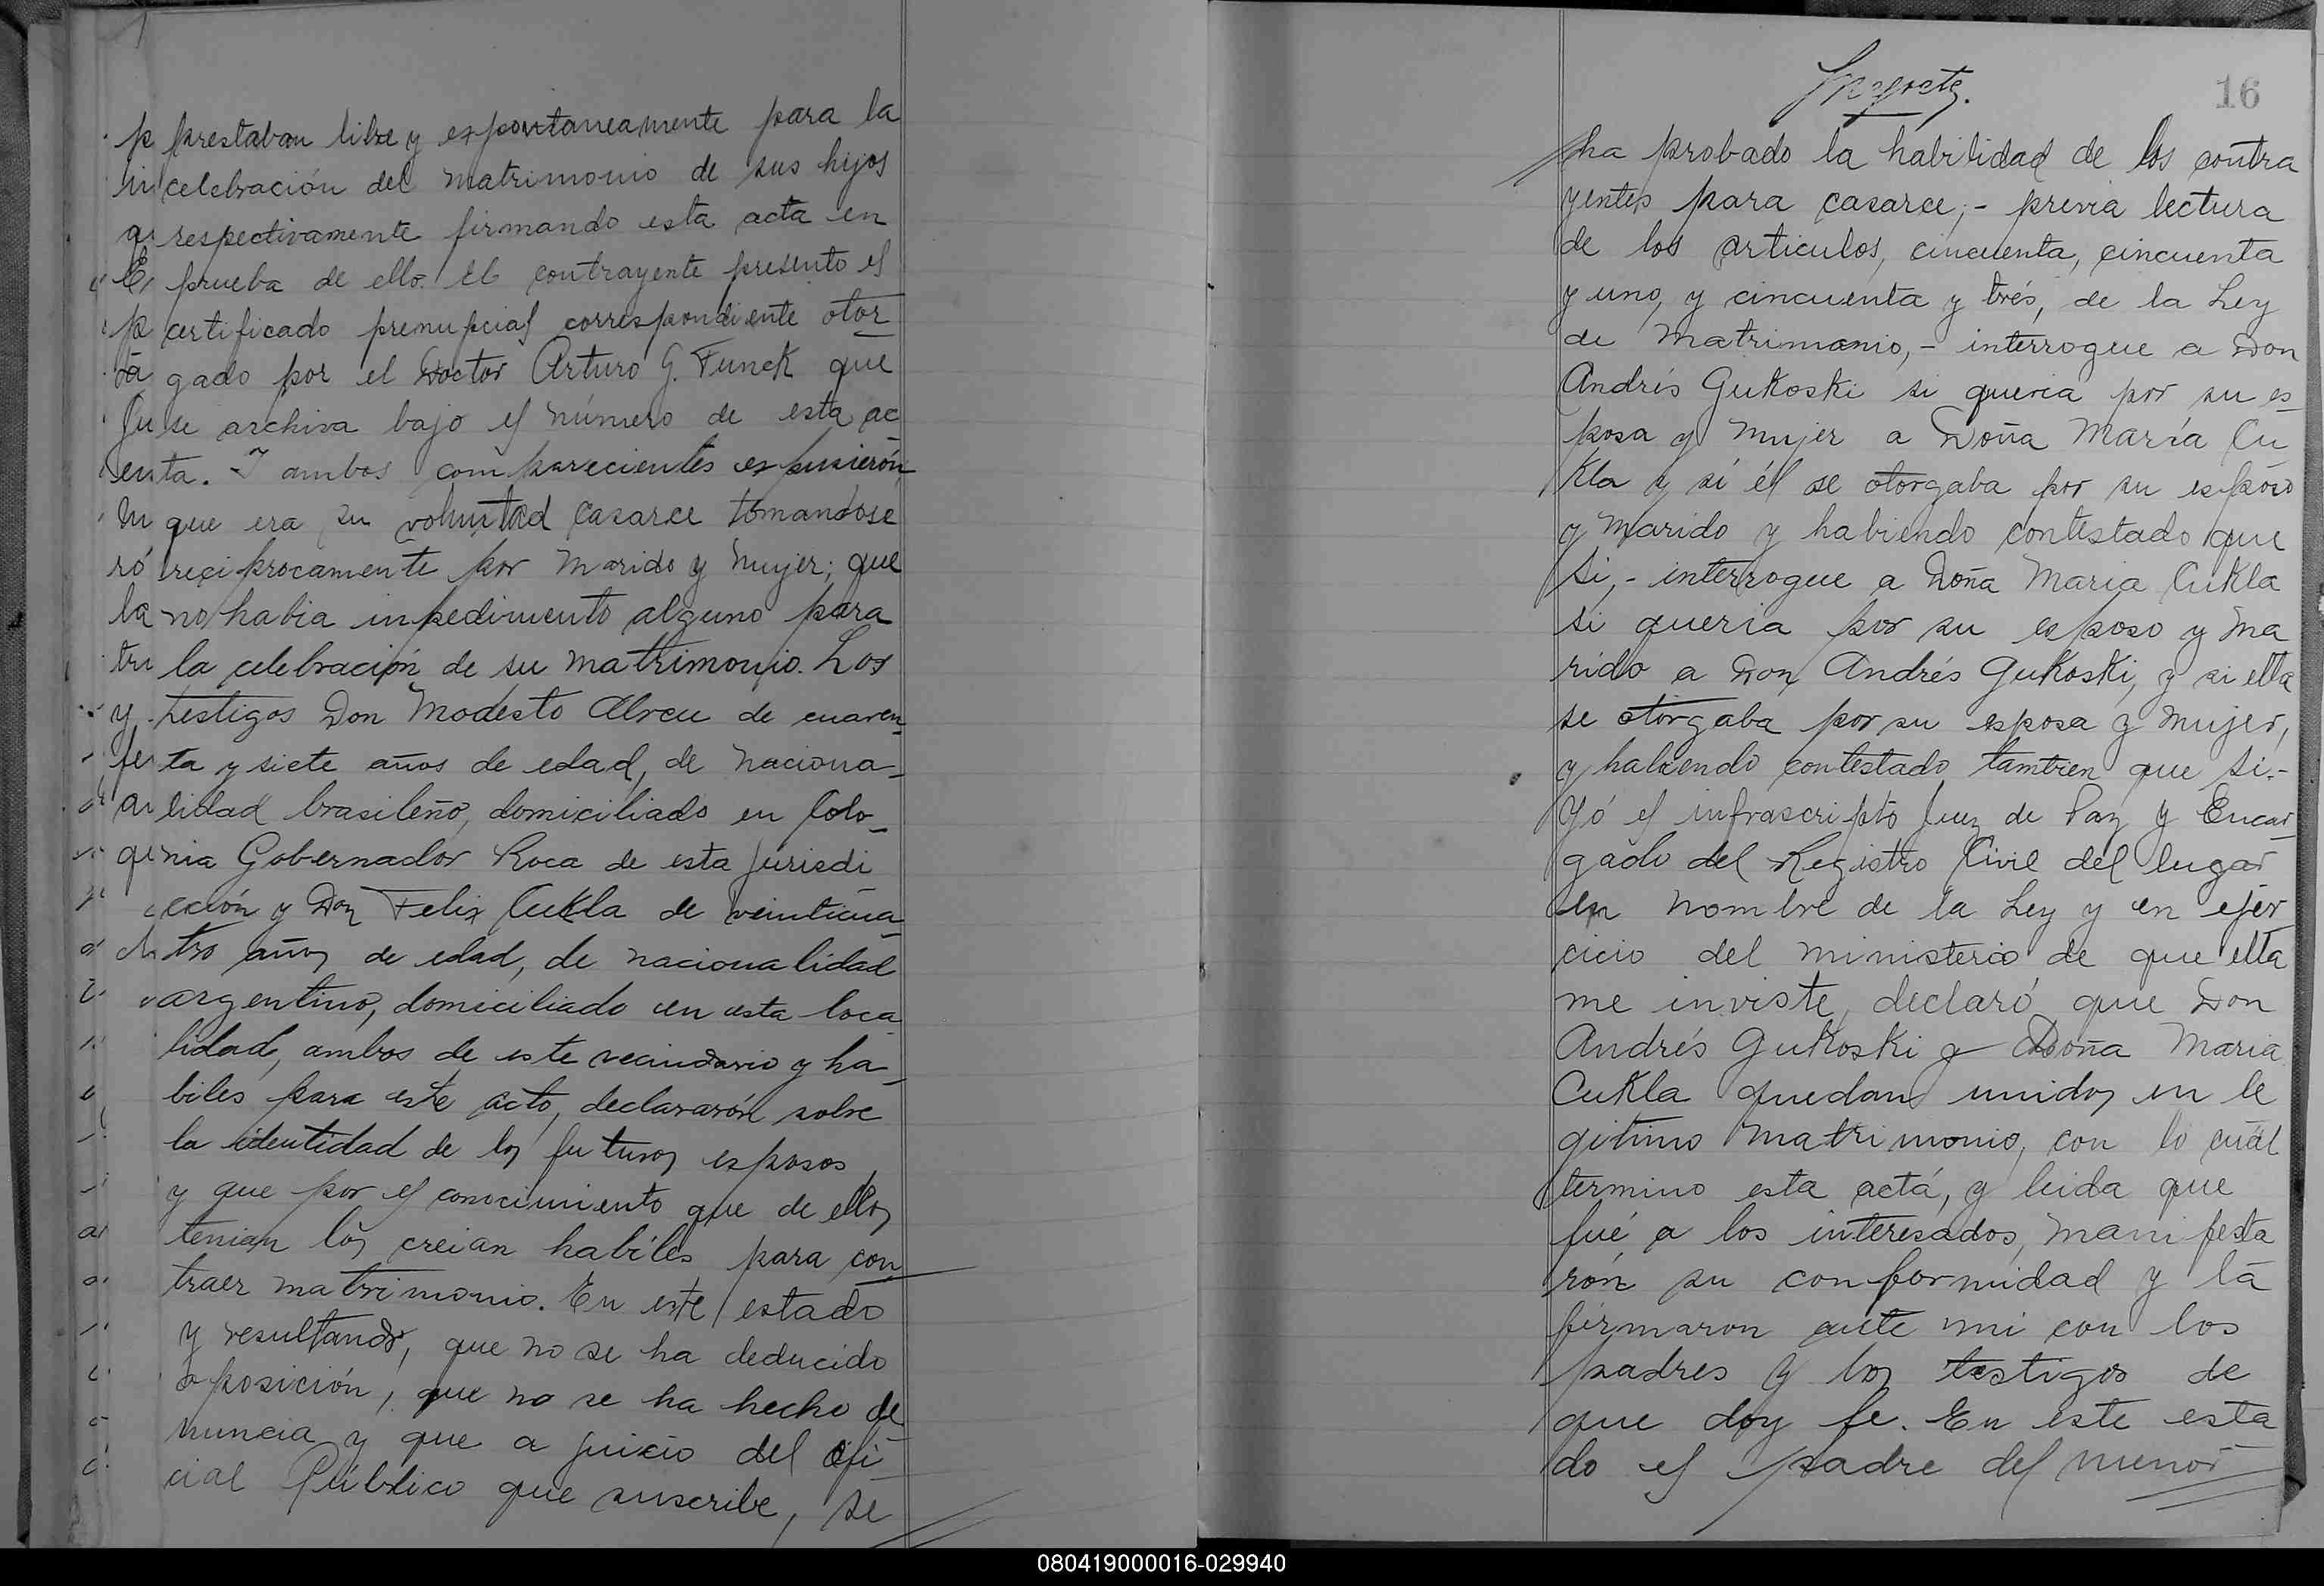 prestaban libre y espontaneamente para la
celebración del matrimonio de sus hijos
respectivamente firmando esta acta en
prueba de ello. El contrayente presento el
certificado prenupcial correspondiente otor
gado por el Doctor Arturo G. Funck que
se archiva bajo el número de esta ac
ta. I ambos comparecientes expusierón,
que era su voluntad casarce tomandose
reciprocamente por marido y mujer; que
no habia inpedimento alguno para
la celebración de su matrimonio. Los
testigos Don Modesto Abreu de cuaren_
ta y siete años de edad, de naciona_
lidad brasileño, domiciliado en Colo_
nia Gobernador Roca de esta jurisdi
cción y Don Felix Cukla de veinticua_
tro años de edad, de nacionalidad
argentino, domiciliado en esta loca
lidad, ambos de este vecindario y ha_
biles para este acto, declararón sobre
la identidad de los futuros esposos,
y que por el conocimiento que de ellos
tenian los creian habiles para con
traer matrimonio. En este estado
y resultando, que no se ha deducido
oposición, que no se ha hecho de
nuncia y que a juicio del Ofi
cial Público que suscribe, se
16
ha probado la habilidad de los contra
yentes para casarce;- previa lectura
de los articulos, cincuenta, cincuenta
y uno, y cincuenta y trés, de la Ley
de Matrimonio,- interrogue a Don
Andrés Gukoski si queria por su es_
posa y mujer a Doña María Cu
kla y si él se otorgaba por su esposo
y marido y habiendo contestado que
si,- interrogue a Doña Maria Cukla
si queria por su esposo y ma
rido a Don Andrés Gukoski, y si ella
se otorgaba por su esposa y mujer,
y habiendo contestado tambien que si.-
Yó el infrascripto Juez de Paz y Encar_
gado del Registro Civil del lugar
en nombre de la Ley y en ejer
cicio del ministerio de que ella
me inviste, declaró que Don
Andrés Gukoski y Doña Maria
Cukla quedan unidos en le
gitimo matrimonio, con lo cuál
termino esta actá, y leida que
fué a los interesados, manifesta
rón su conformidad y la
firmaron ante mi con los
padres y los testigos de
que doy fe. En este esta
do el padre del menor
080419000016-029940